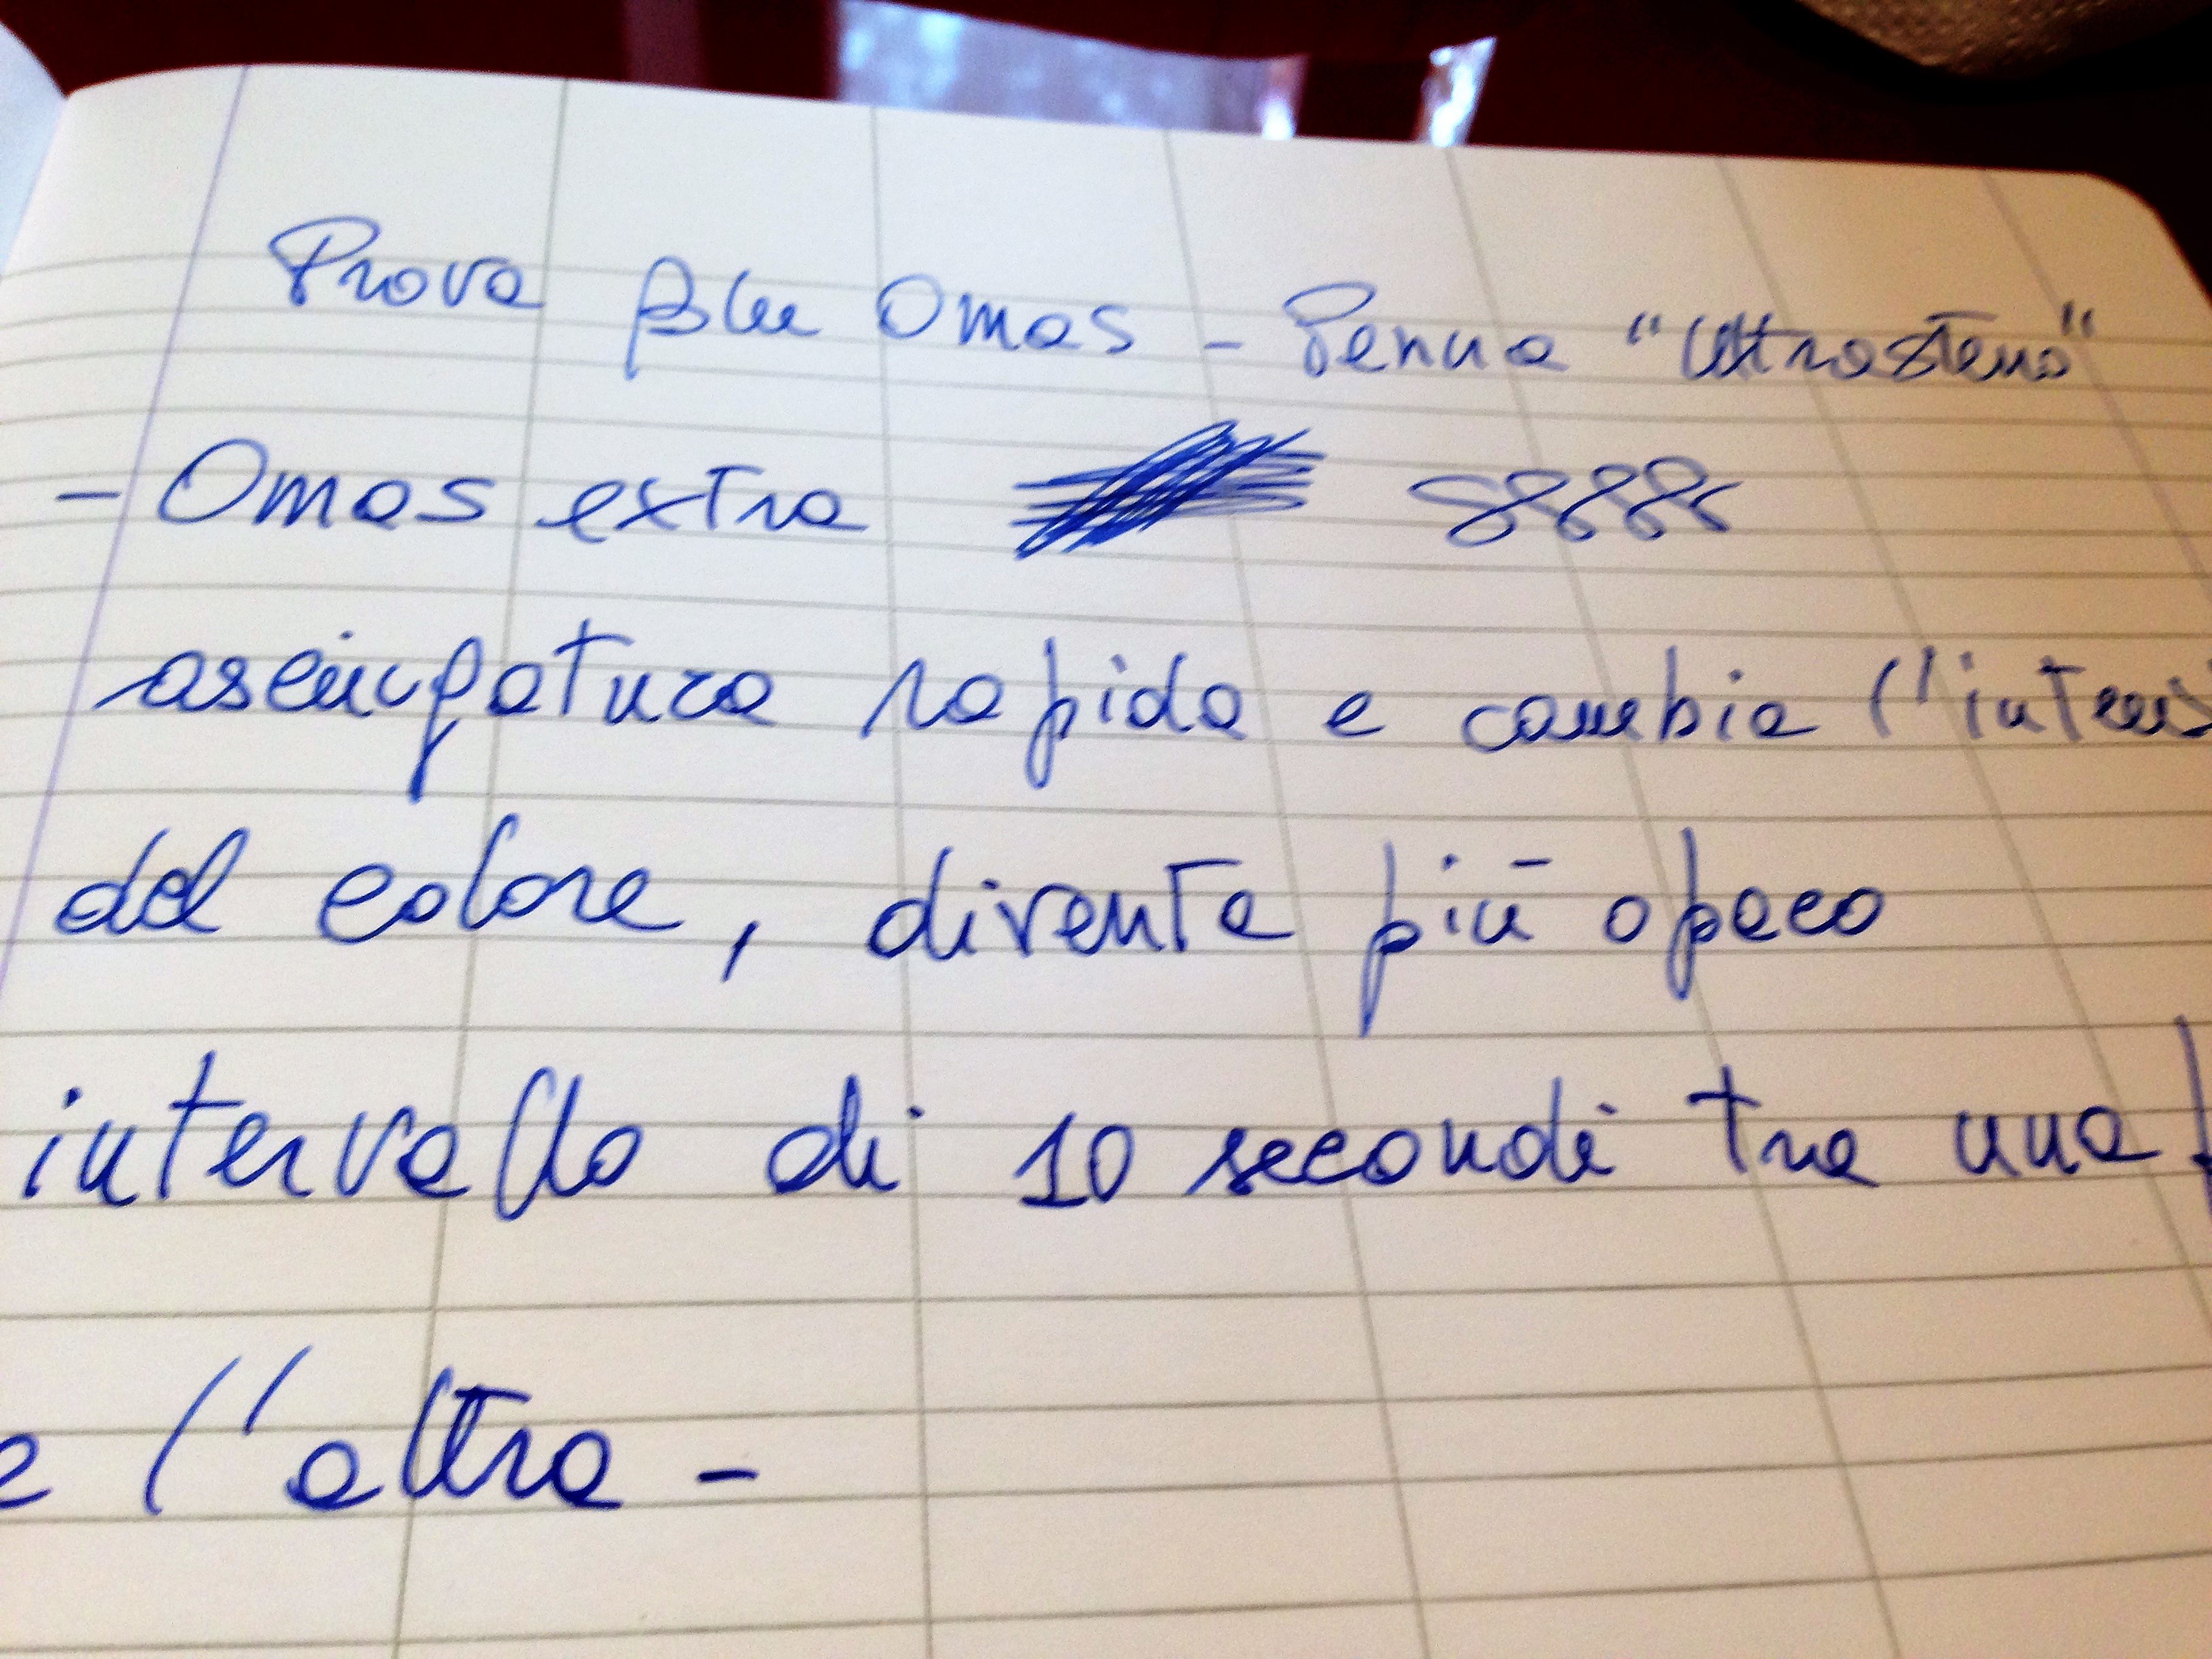 Prova Blu Omas - Penna "Ultrasteno"
- Omas extra 8888
asciugatura rapida e cambia l'intens
del colore, diventa più opaco
intervallo di 10 secondi tra una
e l'altra -